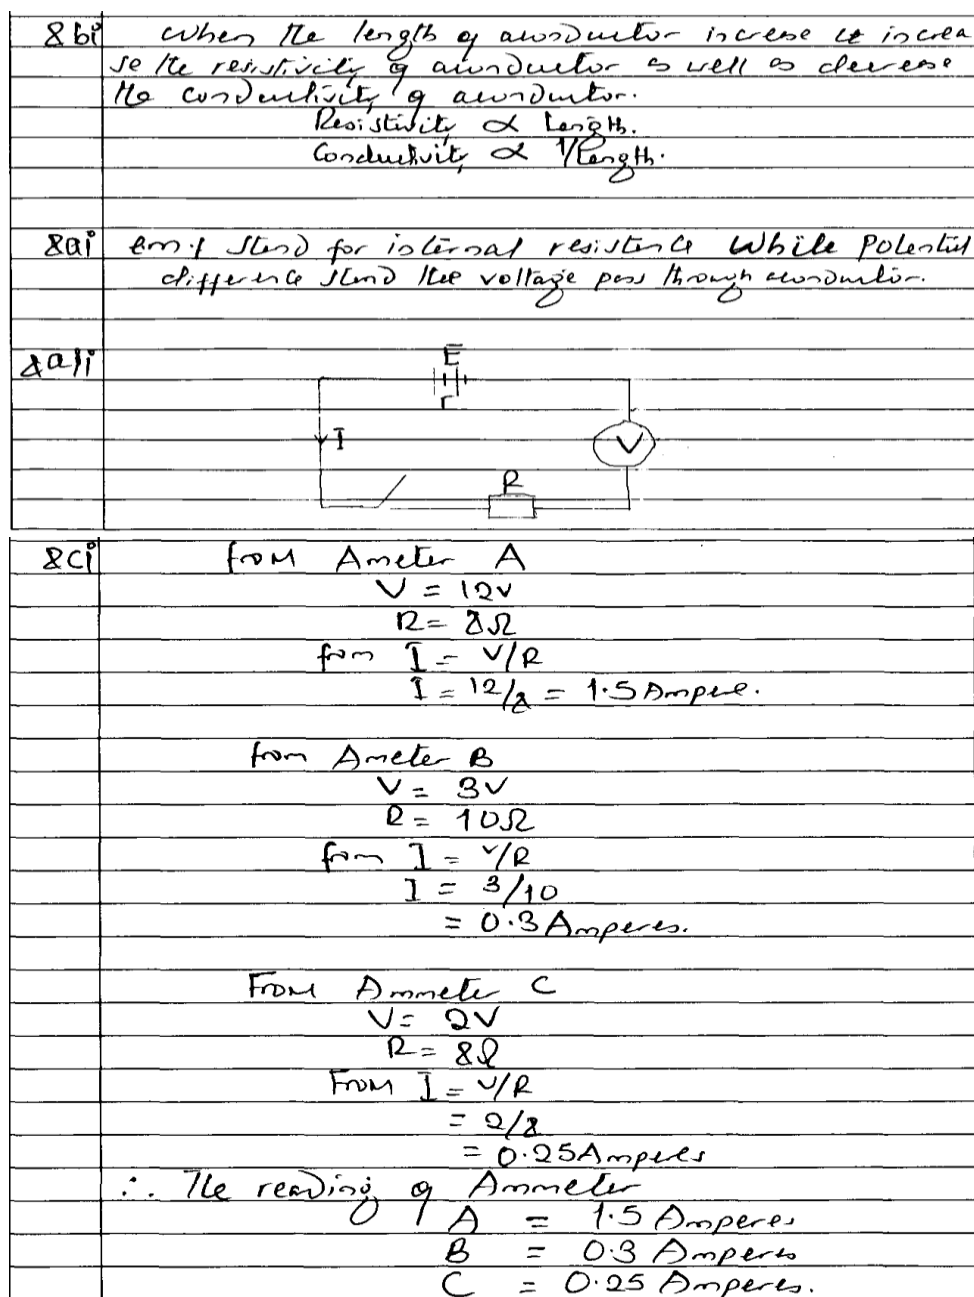 8bi when the length of aconductor increse it increa
se the resistivity of aconductor as well as decrese
the conductivity of aconductor.
Resistivity ∝ Length.
Conductivity ∝ 1/length.
8ai em.f stend for internal resistence While Potential
difference stend the voltage pass through aconductor.
8aii
E
r
I
V
R
8ci from Ameter A
V = 12v
R = 8Ω
from I = V/R
I = 12/8 = 1.5 Ampere.
from Ameter B
V = 3V
R = 10Ω
from I = V/R
I = 3/10
= 0.3 Amperes.
From Ammeter C
V = 2V
R = 8Ω
From I = V/R
= 2/8
= 0.25 Amperes
∴ The reading of Ammeter
A = 1.5 Amperes
B = 0.3 Amperes
C = 0.25 Amperes.